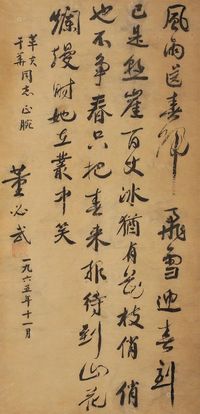 風雨送春歸飛雪迎春到
已是懸崖百丈冰猶有花枝俏俏
也不争春只把春来报待到山花
爛熳时她在叢中笑
辛亥
于若同志正腕
董必武
一九六五年十一月